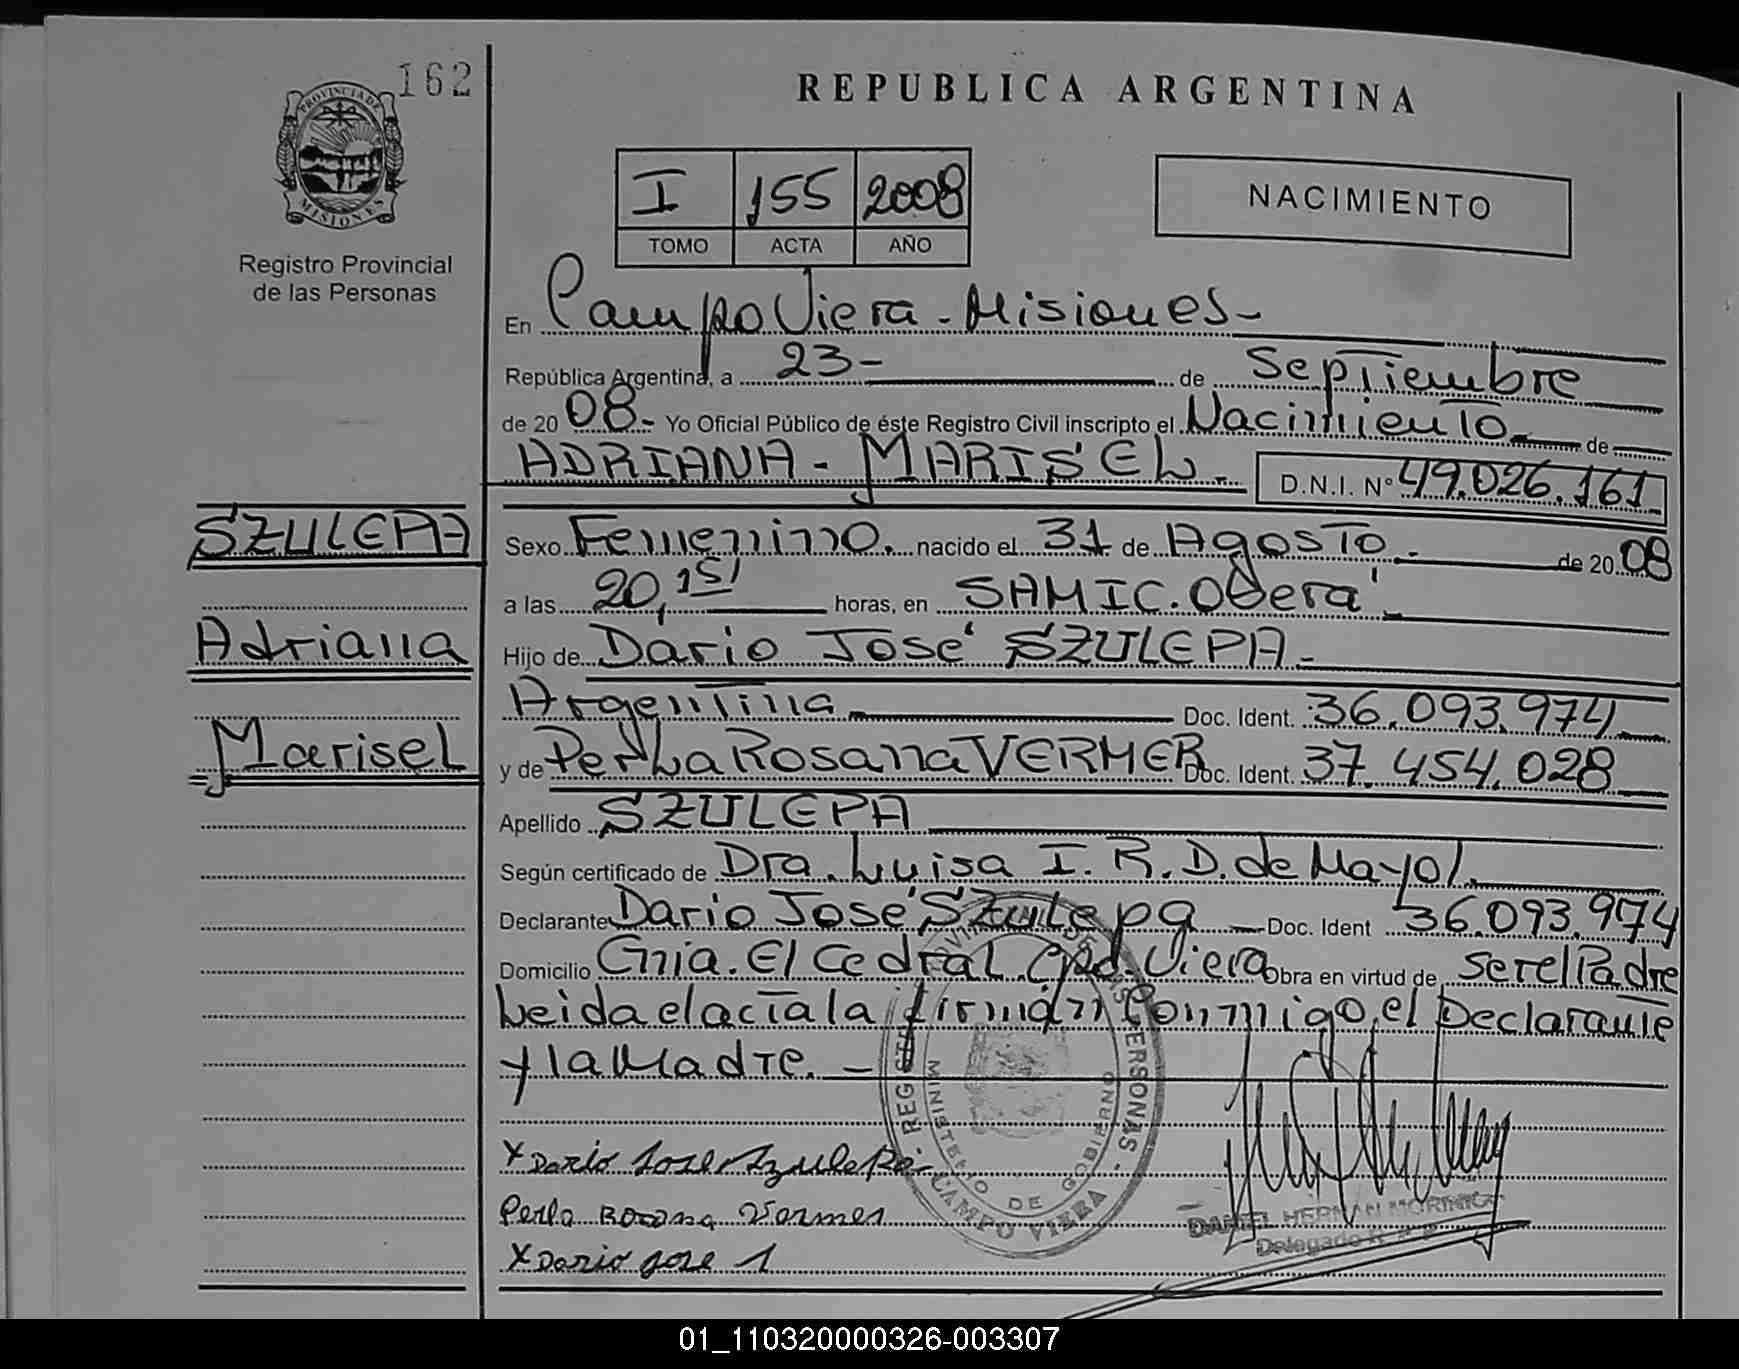 162
PROVINCIA DE
MISIONES
Registro Provincial
de las Personas
REPUBLICA ARGENTINA
I 155 2008
TOMO ACTA AÑO
NACIMIENTO
En Campo Viera - Misiones -
República Argentina, a 23 - de Septiembre
de 20 08.- Yo Oficial Público de éste Registro Civil inscripto el Nacimiento de
ADRIANA - MARISEL - D.N.I. N° 49.026.161
SZULEPA
Sexo Femenino. nacido el 31 de Agosto - de 20 08
a las 20,15' horas, en SAMIC. Oberá -
Adriana
Hijo de Dario José SZULEPA -
Argentina Doc. Ident. 36.093.974
Marisel
y de Perla Rosana VERMER Doc. Ident. 37.454.028
Apellido SZULEPA
Según certificado de Dra. Luisa I. R. D. de Mayol.
Declarante Dario José Szulepa - Doc. Ident 36.093.974
Domicilio Cnia. El Cedral. Cpo. Viera Obra en virtud de ser el Padre
Leida el acta la firman Conmigo, el Declarante
y la Madre. -
X Dario Jose Szulepa
Perla Rosana Vermer
X Dario Jose 1
PERSONAS - CAMPO VIERA
MINISTERIO DE GOBIERNO
DANIEL HERNAN
Delegado R. P. P.
01_110320000326-003307